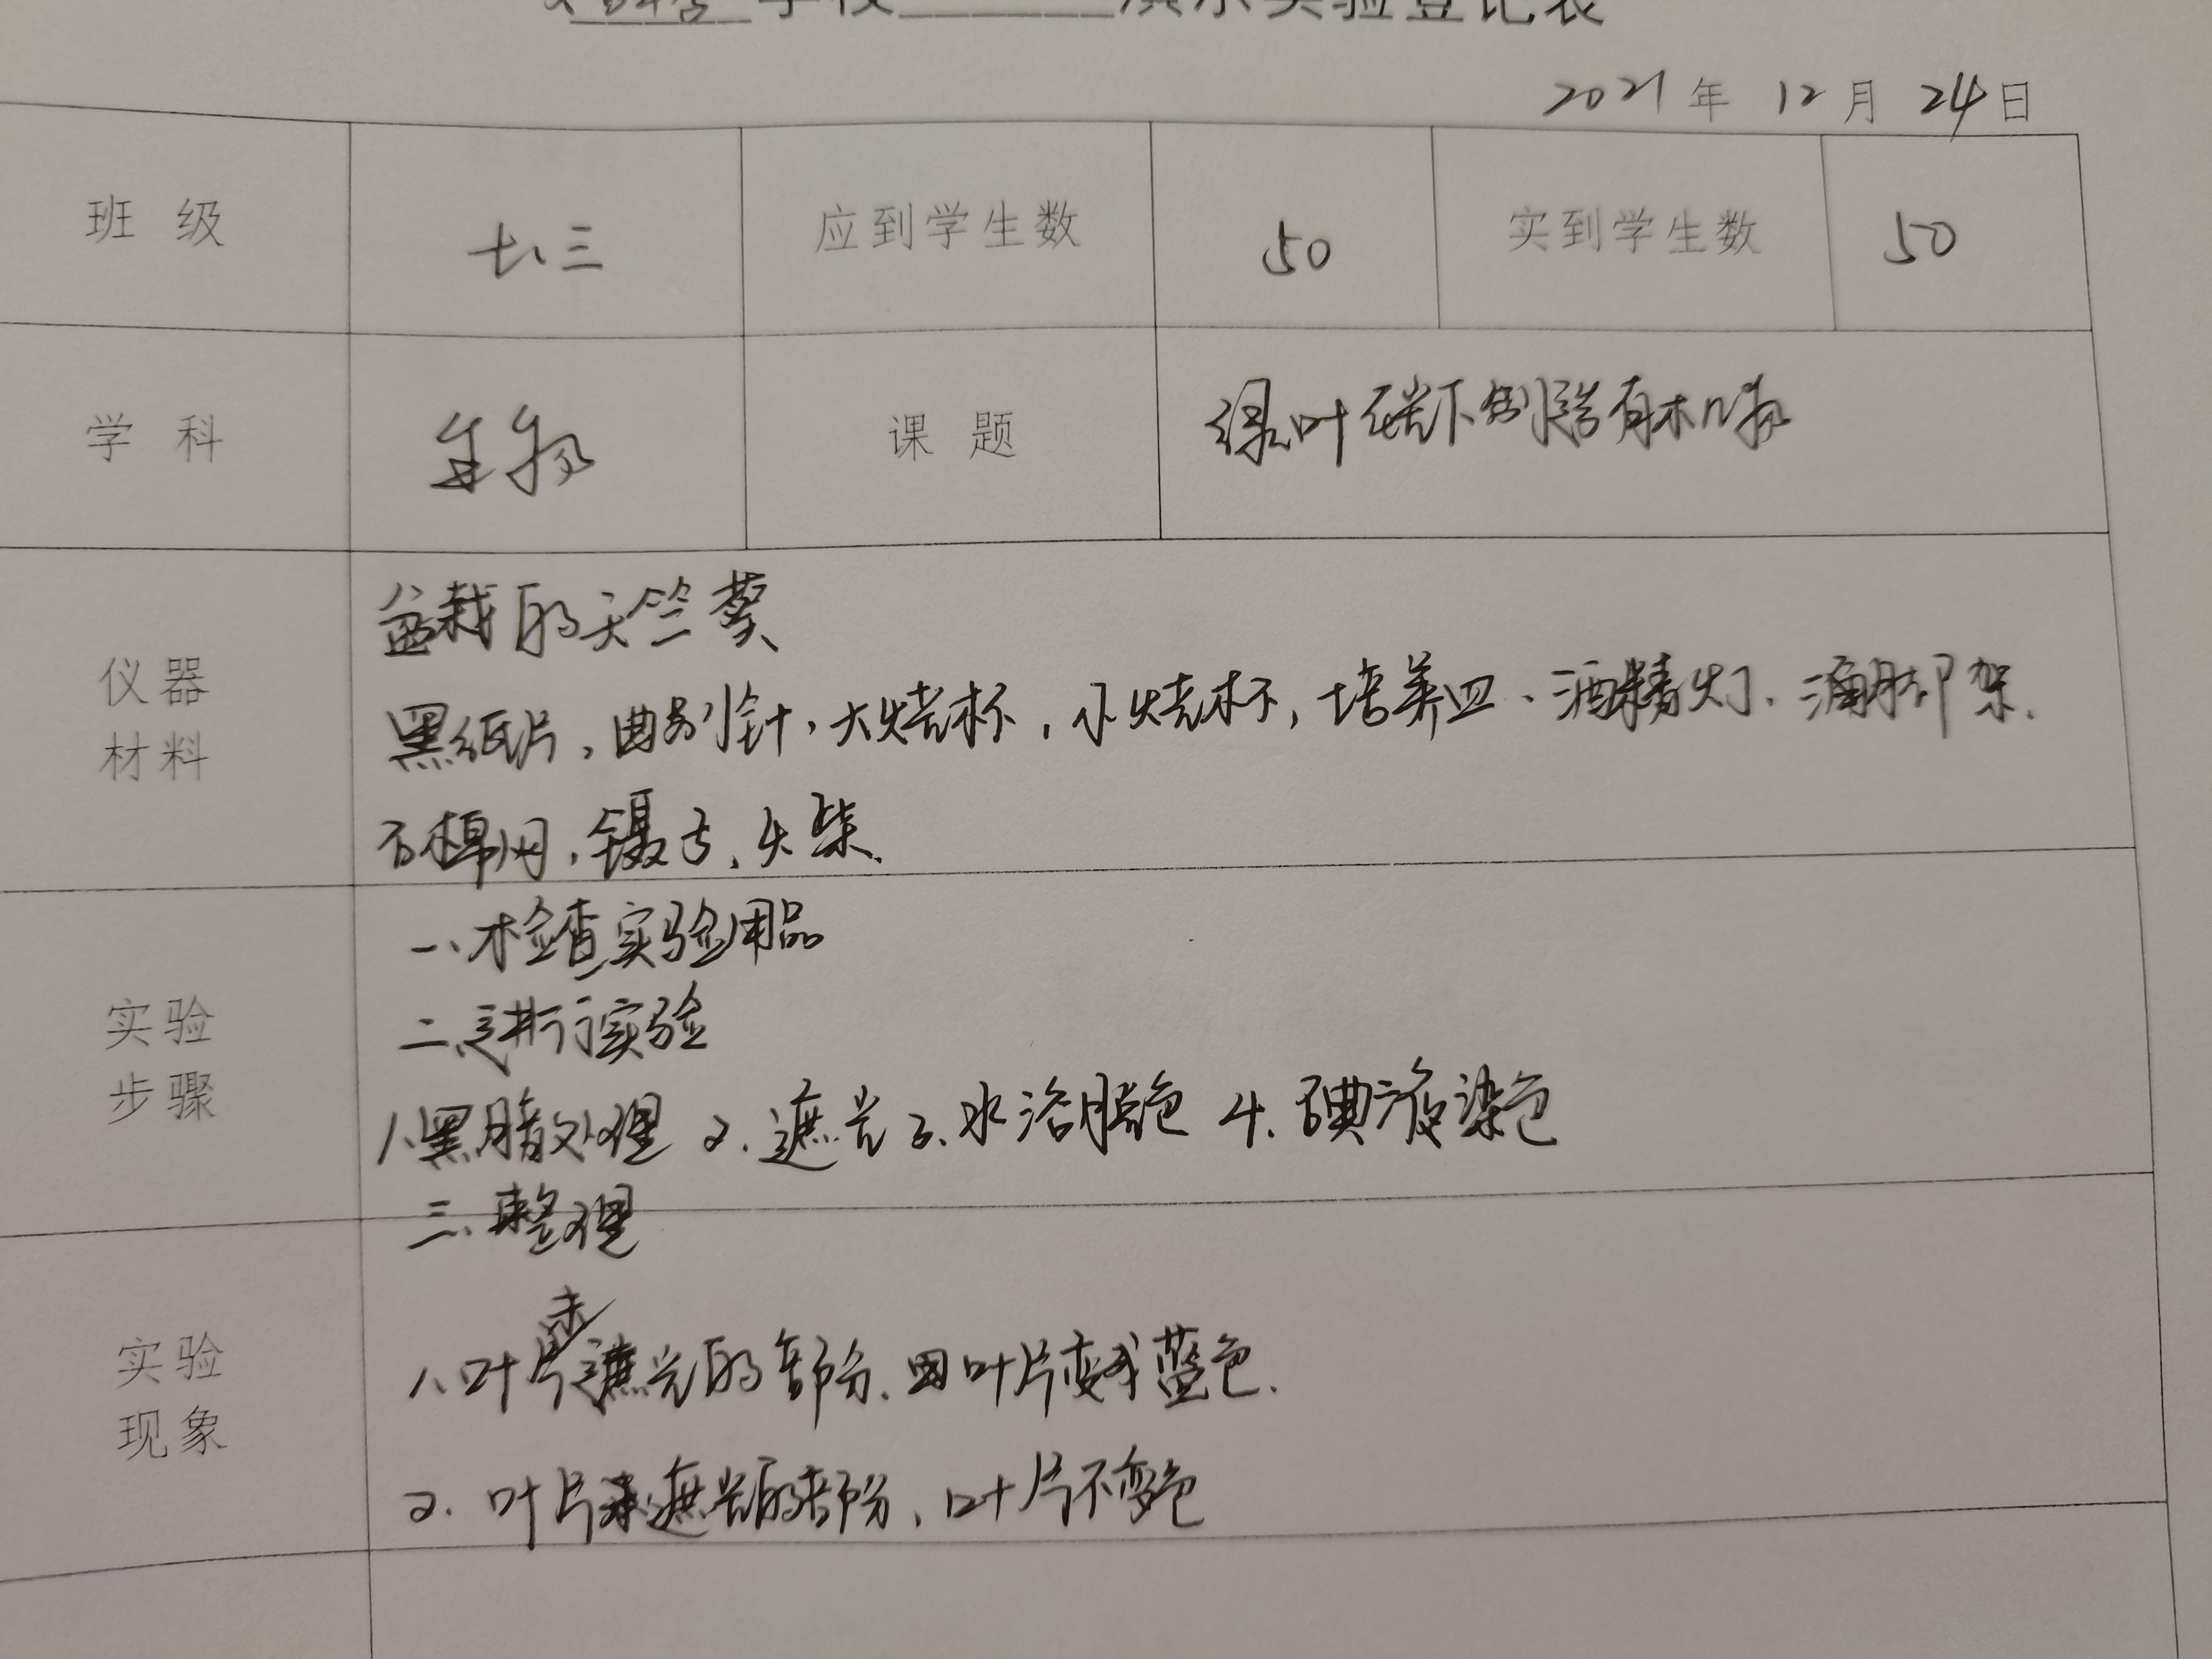 学校______演示实验登记表
2021年 12月 24日
班 级 七、三 应到学生数 50 实到学生数 50
学 科 生物 课 题 绿叶在光下制造有机物
仪器材料
盆栽的天竺葵
黑纸片，曲别针，大烧杯，小烧杯，培养皿、酒精灯、三脚架、
石棉网，镊子、火柴、
实验步骤
一、检查实验用品
二、进行实验
1、黑暗处理 2、遮光 3、水浴脱色 4、碘液染色
三、整理
实验现象
1、叶片未遮光的部分、叶片变成蓝色.
2. 叶片遮光的部分、叶片不变色